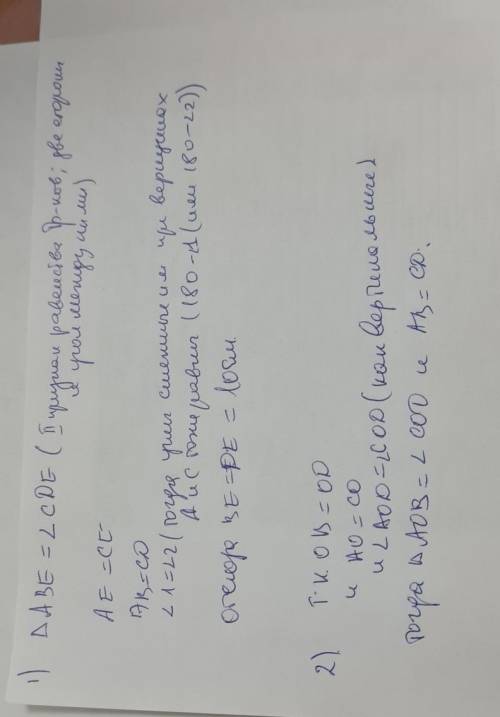 1) ΔABE = ∠CDE (I признак равенства тр-ков; две стороны
и угол между ними)
AE = CE
AB = CD
∠1=∠2 (тогда углы смежные им при вершинах
A и C тоже равны (180-∠1 (или 180-∠2))
отсюда BE = DE = 10 см.
2) Т.к. OB = OD
и AO = CO
и ∠AOD = ∠COD (как вертикальные)
тогда ΔAOB = ∠COD и AB = CD.